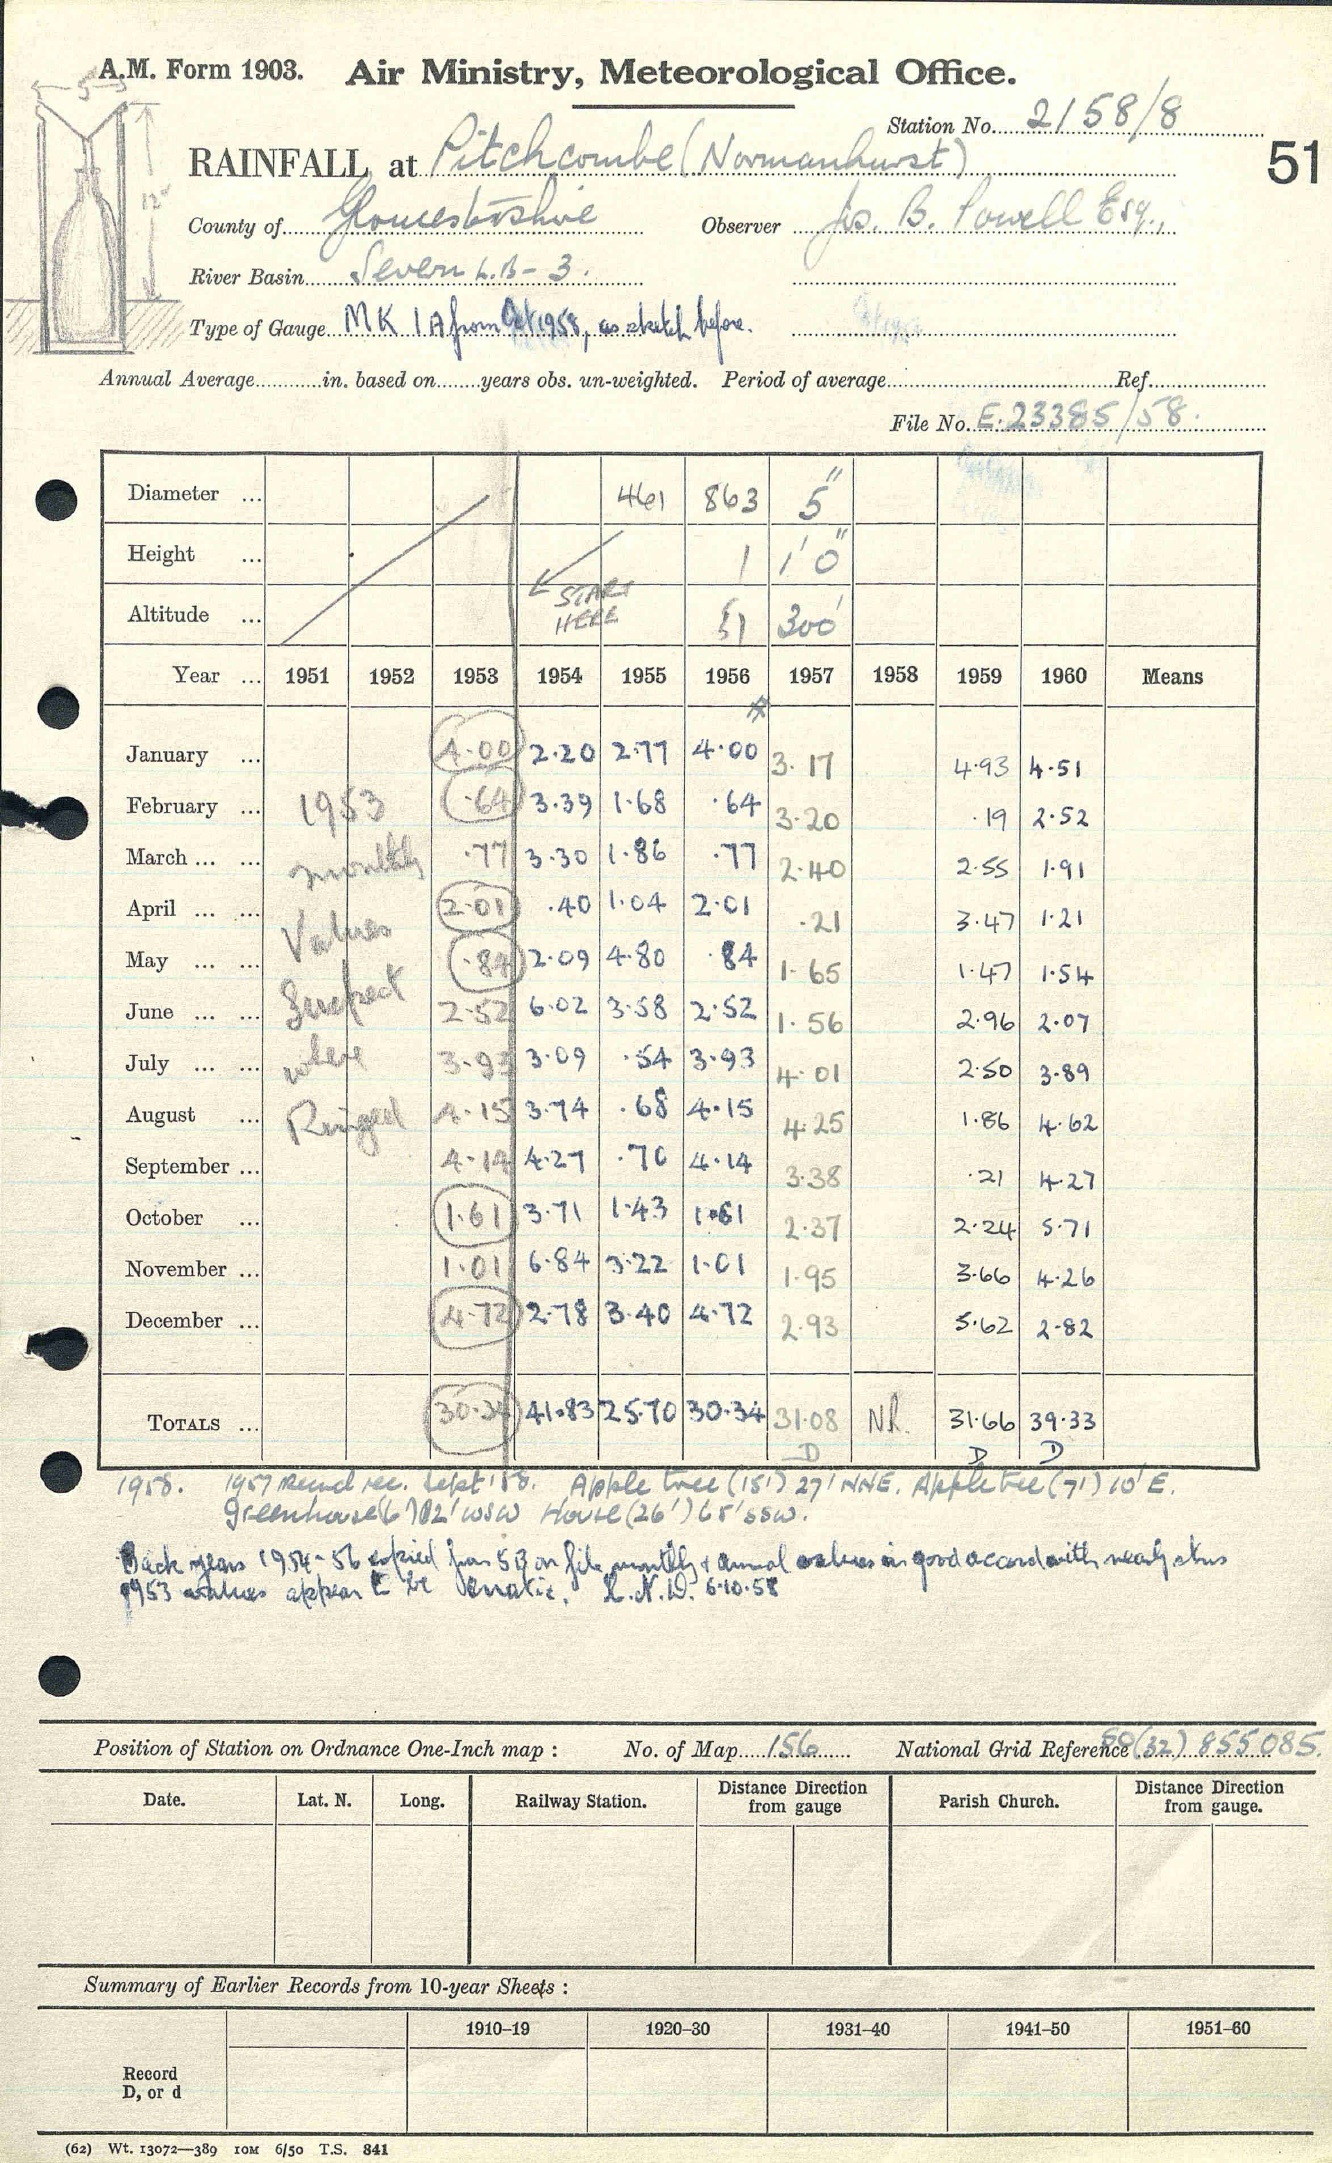 A.M. Form 1903. Air Ministry, Meteorological Office.
5
Station No. 2158/8
RAINFALL at Pitchcombe (Normanhurst)
51
12"
County of Gloucestershire Observer Js. B. Powell Esq.,
River Basin Severn L.B-3.
Type of Gauge MK 1A from Oct 1958, as sketch before.
Annual Average in. based on years obs. un-weighted. Period of average Ref.
File No. E.23385/58.
Diameter ... 461 863 5"
Height ... 1 1'0"
START
HERE
Altitude ... 51 300'
Year ... 1951 1952 1953 1954 1955 1956 1957 1958 1959 1960 Means
January ... 4.00 2.20 2.77 4.00 3.17 4.93 4.51
February ... .64 3.39 1.68 .64 3.20 .19 2.52
March ... ... .77 3.30 1.86 .77 2.40 2.55 1.91
April ... ... 2.01 .40 1.04 2.01 .21 3.47 1.21
May ... ... .84 2.09 4.80 .84 1.65 1.47 1.54
June ... ... 2.52 6.02 3.58 2.52 1.56 2.96 2.07
July ... ... 3.93 3.09 .54 3.93 4.01 2.50 3.89
August ... 4.15 3.74 .68 4.15 4.25 1.86 4.62
September ... 4.14 4.27 .70 4.14 3.38 .21 4.27
October ... 1.61 3.71 1.43 1.61 2.37 2.24 5.71
November ... 1.01 6.84 3.22 1.01 1.95 3.66 4.26
December ... 4.72 2.78 3.40 4.72 2.93 5.62 2.82
1953
monthly
Values
Suspect
where
Ringed
TOTALS ... 30.34 41.83 25.70 30.34 31.08 NR. 31.66 39.33
D D D
1958. 1957 record rec. Sept '58. Apple tree (15') 27' NNE. Apple tree (7') 10' E.
Greenhouse (6') 12' WSW House (26') 65' SSW.
Back years 1954-56 copied from on file, monthly & annual values in good accord with nearby stns
1953 values appear to be erratic. L.N.W. 6.10.58
Position of Station on Ordnance One-Inch map : No. of Map 156 National Grid Reference (32) 855085.
Date. Lat. N. Long. Railway Station. Distance Direction from gauge Parish Church. Distance Direction from gauge.
Summary of Earlier Records from 10-year Sheets :
1910–19 1920–30 1931–40 1941–50 1951–60
Record
D, or d
(62) Wt. 13072—389 10M 6/50 T.S. 841